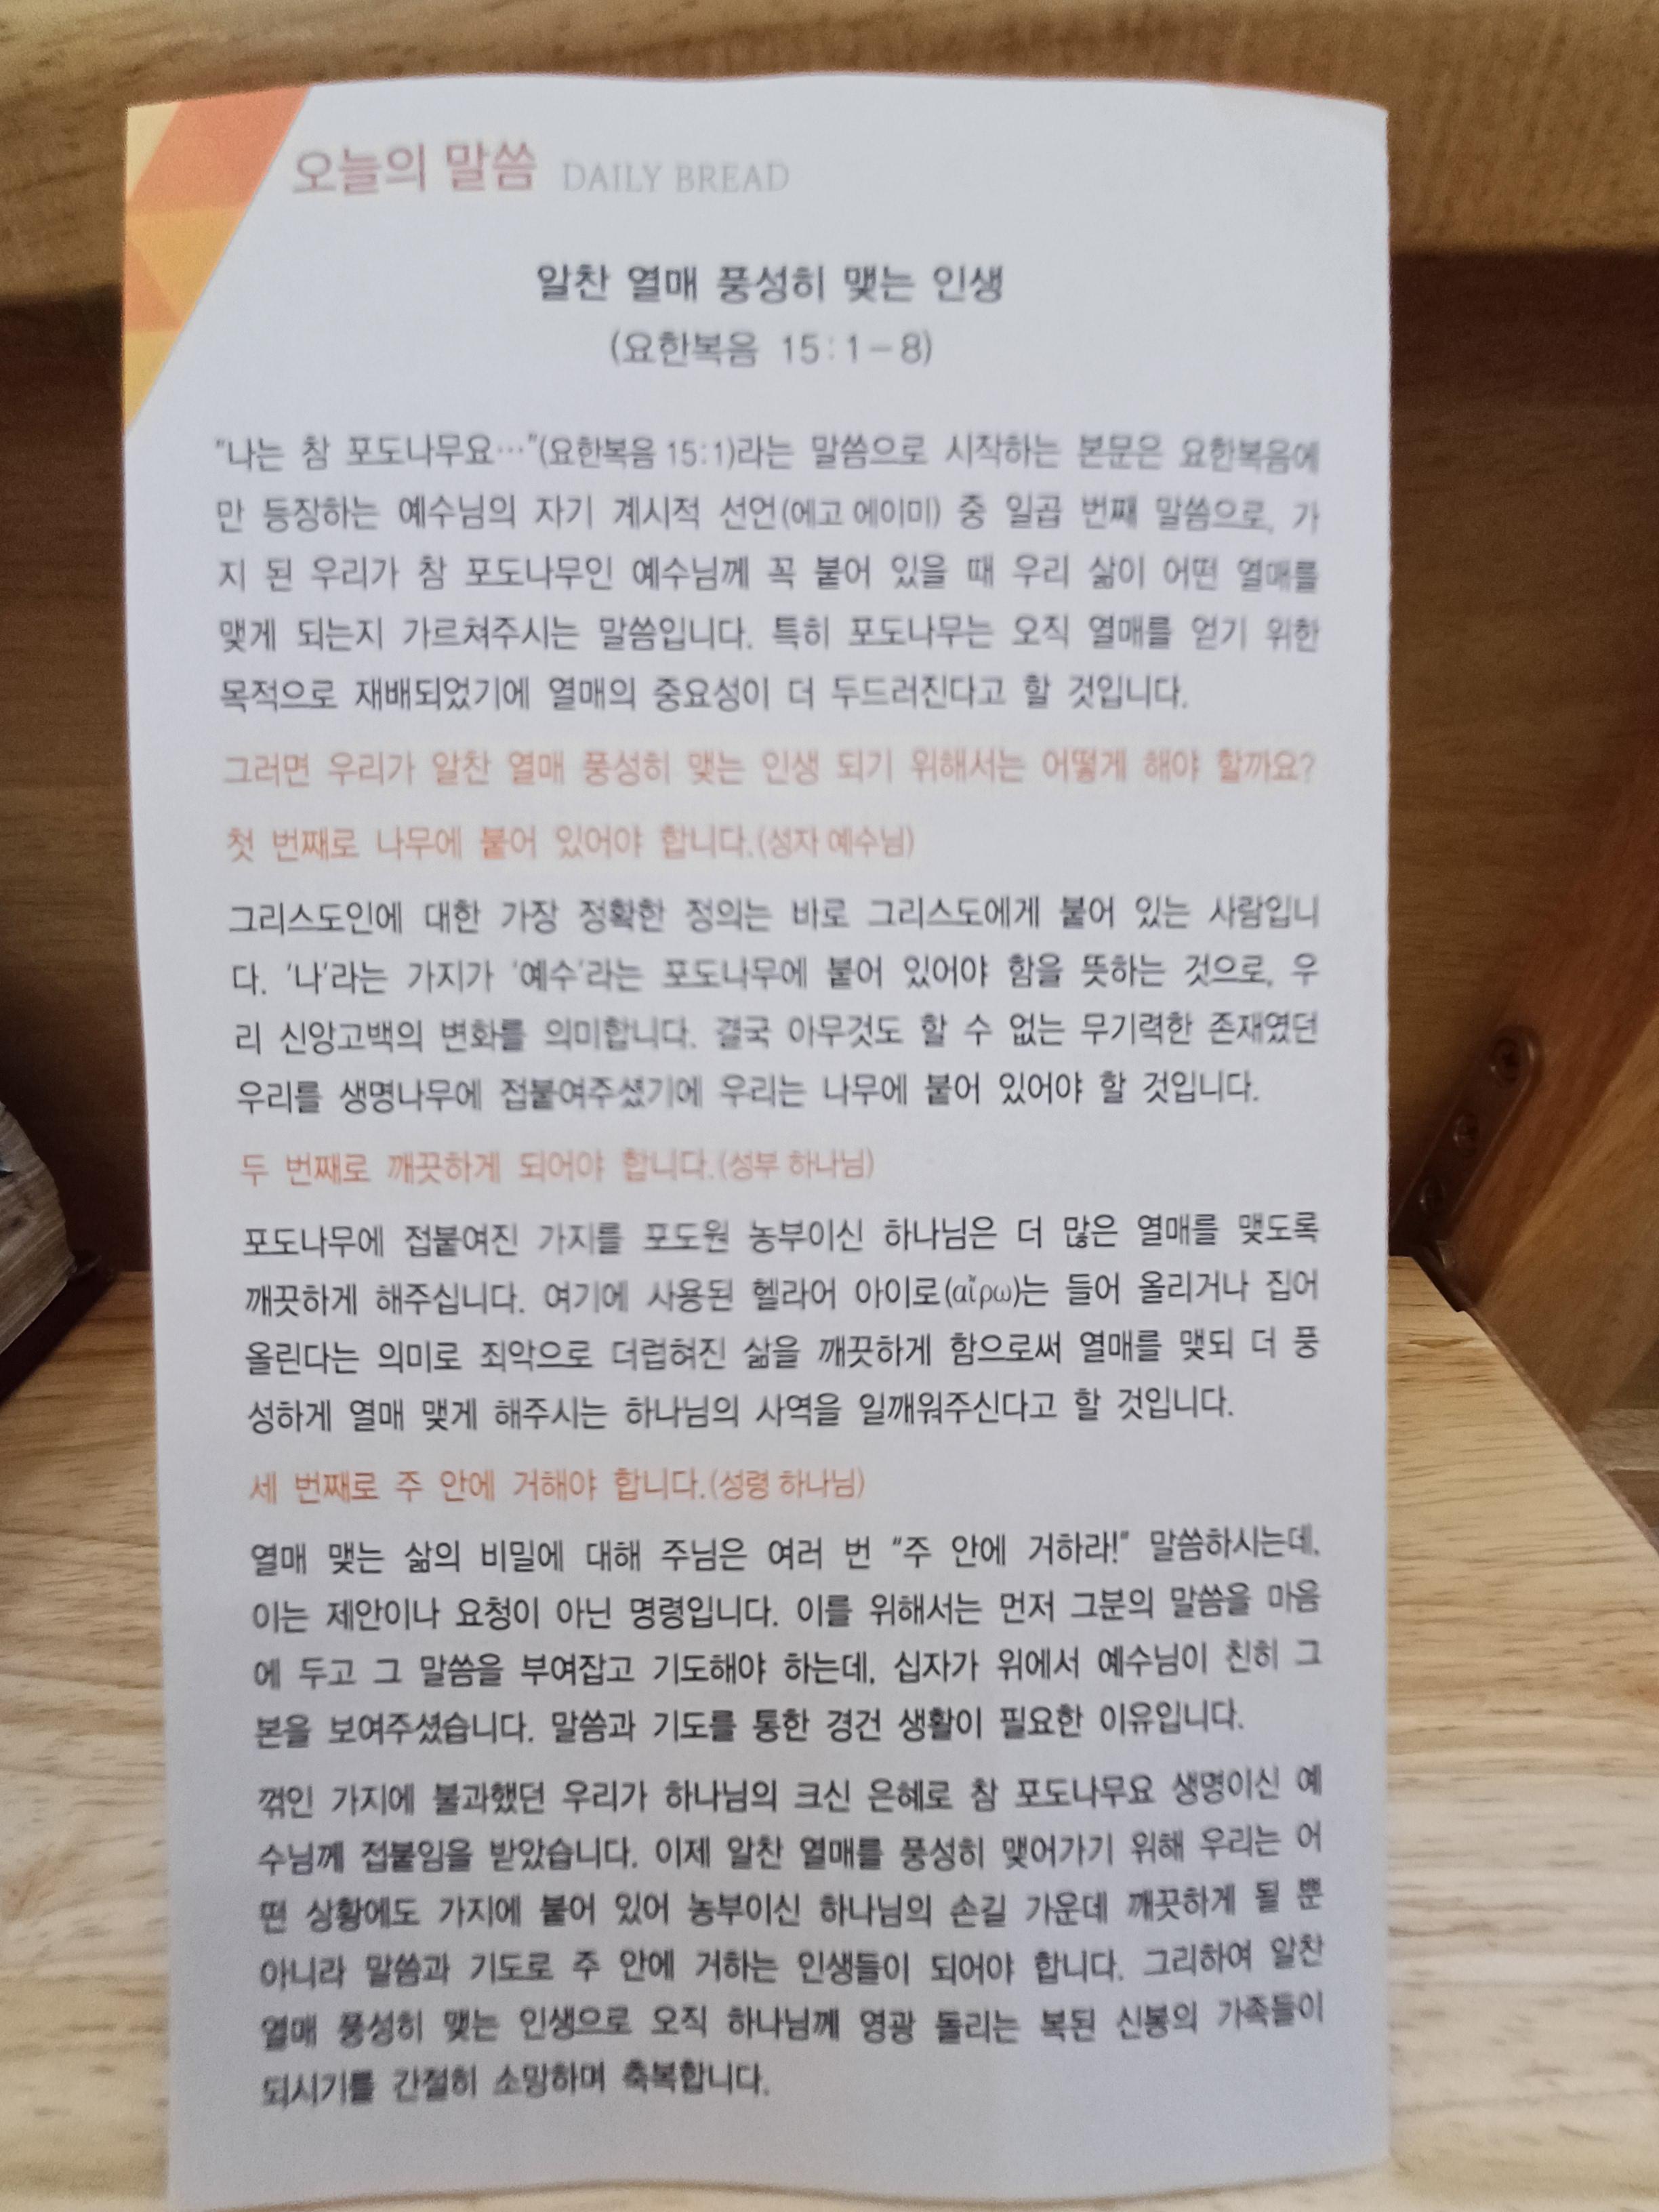 오늘의 말씀 DAILY BREAD
알찬 열매 풍성히 맺는 인생
(요한복음 15:1-8)
"나는 참 포도나무요…"(요한복음 15:1)라는 말씀으로 시작하는 본문은 요한복음에
만 등장하는 예수님의 자기 계시적 선언(에고 에이미) 중 일곱 번째 말씀으로, 가
지 된 우리가 참 포도나무인 예수님께 꼭 붙어 있을 때 우리 삶이 어떤 열매를
맺게 되는지 가르쳐주시는 말씀입니다. 특히 포도나무는 오직 열매를 얻기 위한
목적으로 재배되었기에 열매의 중요성이 더 두드러진다고 할 것입니다.
그러면 우리가 알찬 열매 풍성히 맺는 인생 되기 위해서는 어떻게 해야 할까요?
첫 번째로 나무에 붙어 있어야 합니다.(성자 예수님)
그리스도인에 대한 가장 정확한 정의는 바로 그리스도에게 붙어 있는 사람입니
다. '나'라는 가지가 '예수'라는 포도나무에 붙어 있어야 함을 뜻하는 것으로, 우
리 신앙고백의 변화를 의미합니다. 결국 아무것도 할 수 없는 무기력한 존재였던
우리를 생명나무에 접붙여주셨기에 우리는 나무에 붙어 있어야 할 것입니다.
두 번째로 깨끗하게 되어야 합니다.(성부 하나님)
포도나무에 접붙여진 가지를 포도원 농부이신 하나님은 더 많은 열매를 맺도록
깨끗하게 해주십니다. 여기에 사용된 헬라어 아이로(αἴρω)는 들어 올리거나 집어
올린다는 의미로 죄악으로 더럽혀진 삶을 깨끗하게 함으로써 열매를 맺되 더 풍
성하게 열매 맺게 해주시는 하나님의 사역을 일깨워주신다고 할 것입니다.
세 번째로 주 안에 거해야 합니다.(성령 하나님)
열매 맺는 삶의 비밀에 대해 주님은 여러 번 "주 안에 거하라!" 말씀하시는데,
이는 제안이나 요청이 아닌 명령입니다. 이를 위해서는 먼저 그분의 말씀을 마음
에 두고 그 말씀을 부여잡고 기도해야 하는데, 십자가 위에서 예수님이 친히 그
본을 보여주셨습니다. 말씀과 기도를 통한 경건 생활이 필요한 이유입니다.
꺾인 가지에 불과했던 우리가 하나님의 크신 은혜로 참 포도나무요 생명이신 예
수님께 접붙임을 받았습니다. 이제 알찬 열매를 풍성히 맺어가기 위해 우리는 어
떤 상황에도 가지에 붙어 있어 농부이신 하나님의 손길 가운데 깨끗하게 될 뿐
아니라 말씀과 기도로 주 안에 거하는 인생들이 되어야 합니다. 그리하여 알찬
열매 풍성히 맺는 인생으로 오직 하나님께 영광 돌리는 복된 신봉의 가족들이
되시기를 간절히 소망하며 축복합니다.